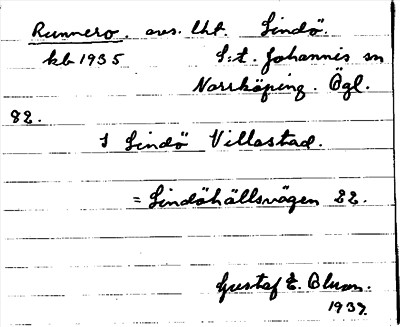 Runnero. avs. lht. Lindö.
kb 1935 S:t. Johannis sn
Norrköping. Ögl.
82.
I Lindö Villastad.
= Lindöhällsvägen 22.
Gustaf E. Bluan.
1937.